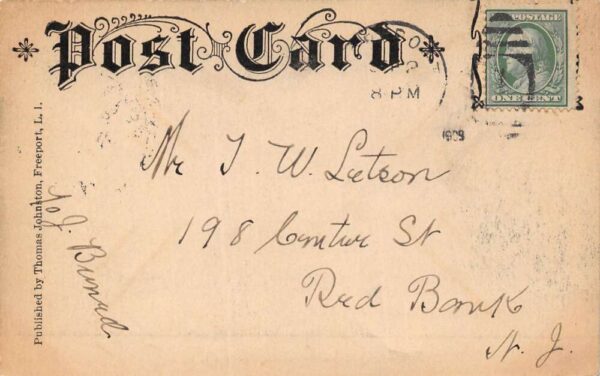 Post Card
8 PM
1909
POSTAGE
ONE CENT
Mr J. W. Letson
198 Centre St
Red Bank
N. J.
Published by Thomas Johnston, Freeport, L. I.